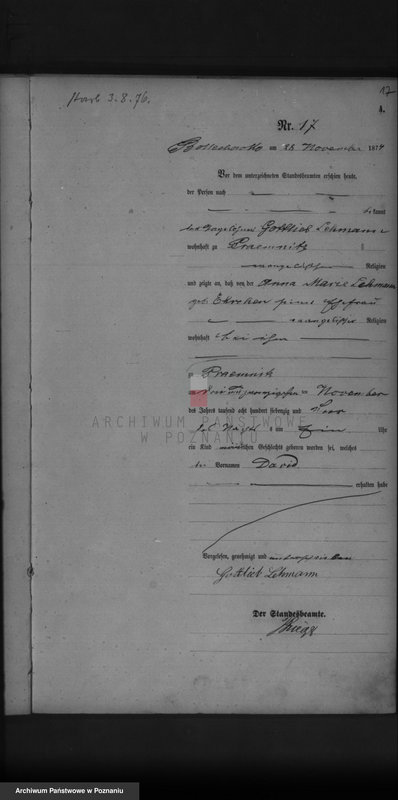 17
Starb 3.8.76.
4.
Nr. 17
am 28 November 1874
Vor dem unterzeichneten Standesbeamten erschien heute,
der Person nach
bekannt
Gottlieb Lehmann
wohnhaft zu Praemnitz
evangelischer Religion
und zeigte an, daß von der Anna Marie Lehmann
geb. seine Ehefrau
evangelischer Religion
wohnhaft bei ihm
zu Praemnitz
am November
des Jahres tausend acht hundert siebenzig und vier
um Uhr
ein Kind männlichen Geschlechts geboren worden sei, welches
Vornamen David
erhalten habe
Vorgelesen, genehmigt und unterschrieben
Gottlieb Lehmann
Der Standesbeamte.
ARCHIWUM PAŃSTWOWE
W POZNANIU
Archiwum Państwowe w Poznaniu